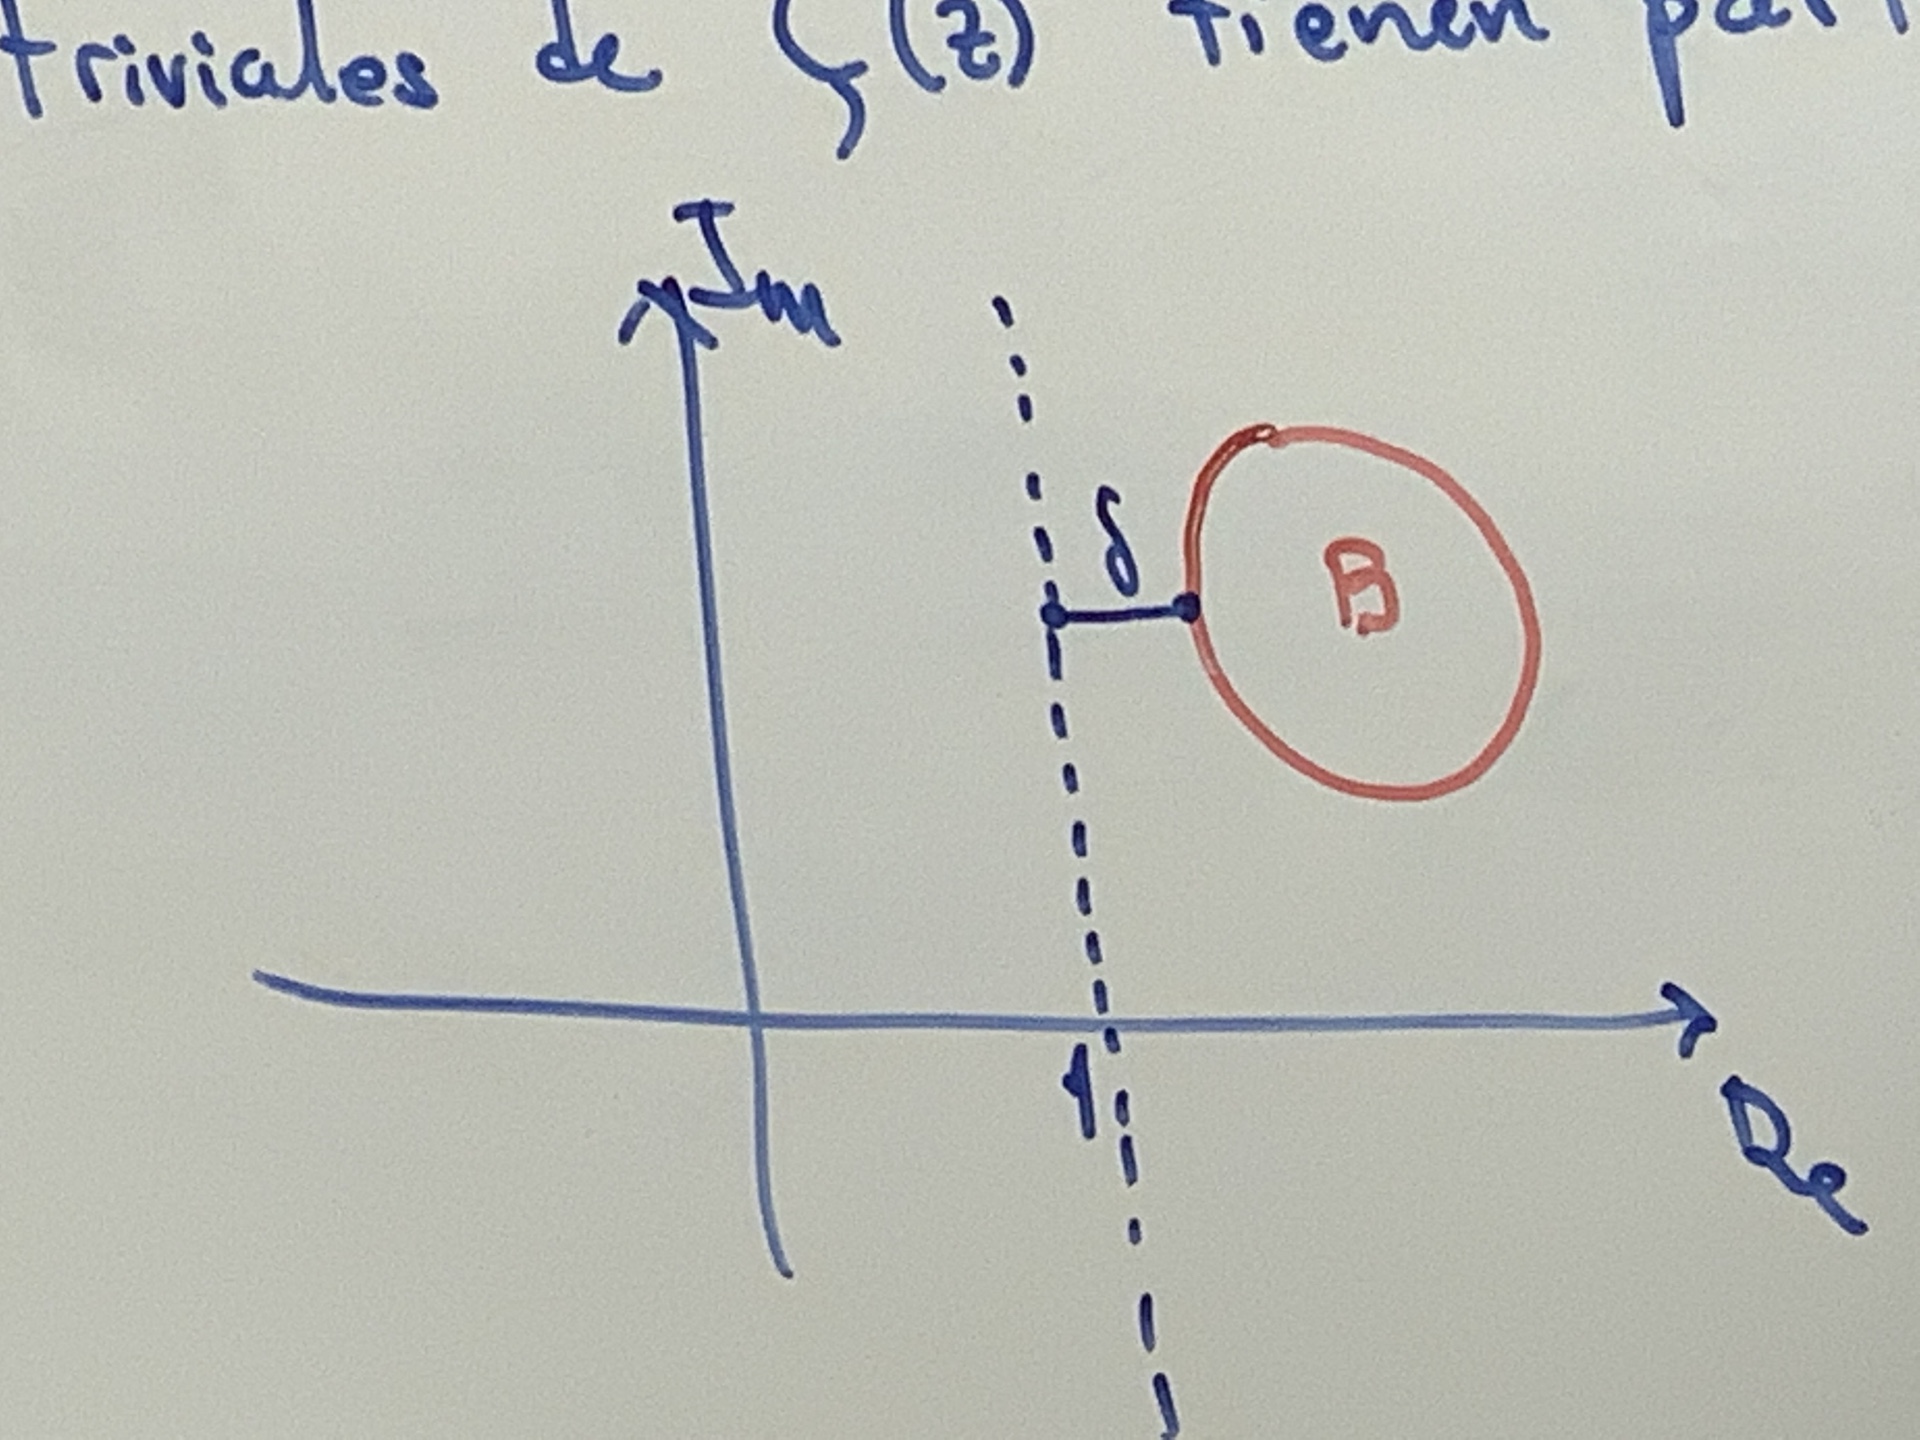 triviales de ζ(z) tienen
Im
δ
B
1
Re